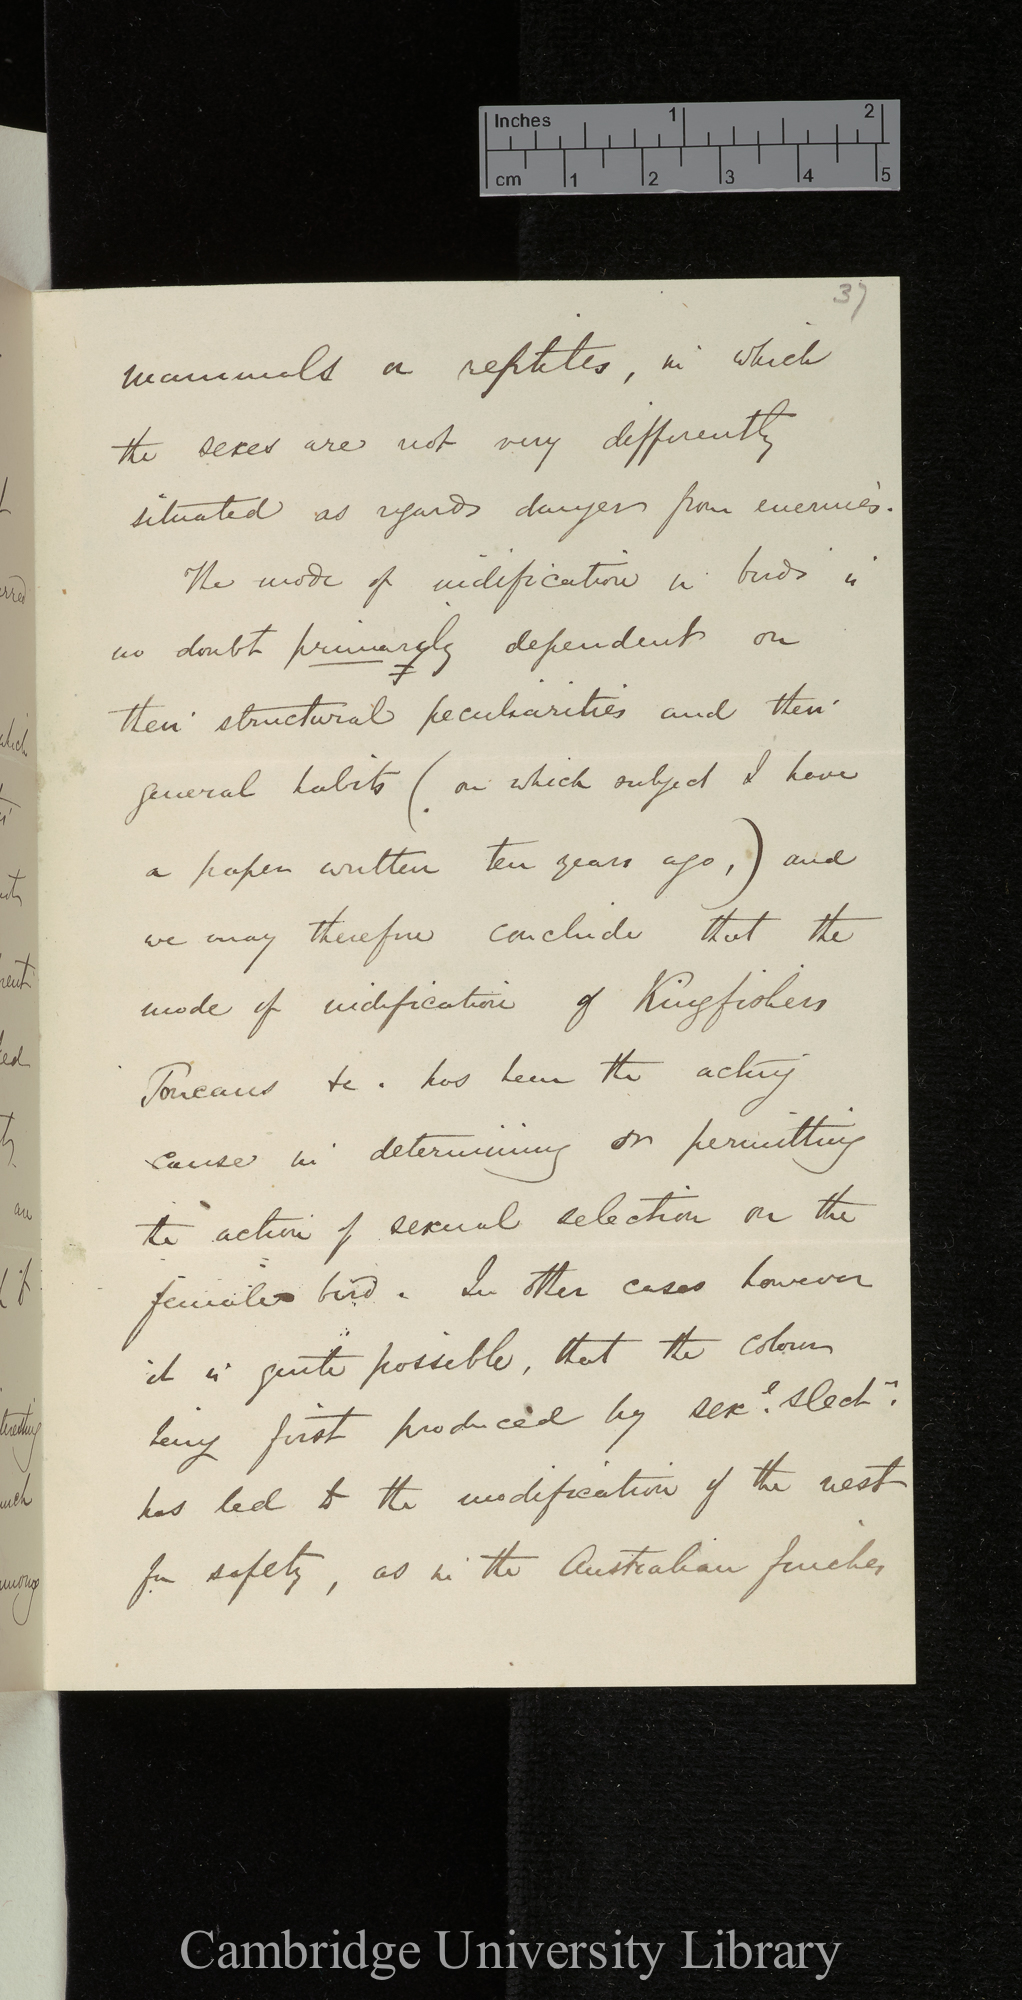 Inches 1 2
cm 1 2 3 4 5
37
mammals or reptiles, in which
the sexes are not very differently
situated as regards danger from enemies.
The mode of nidification in birds is
no doubt primarily dependent on
their structural peculiarities and their
general habits (on which subject I have
a paper written ten years ago,) and
we may therefore conclude that the
mode of nidification of Kingfishers
Toucans &c. has been the acting
cause in determining or permitting
the action of sexual selection on the
female bird. In other cases however
it is quite possible, that the colours
being first produced by sexl. slectn.
has led to the modification of the nest
for safety, as in the Australian finches
Cambridge University Library